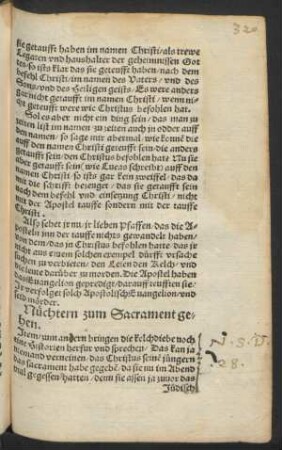 320
sie getaufft haben im namen Christi/als trewe
Legaten vnd haushalter der geheimnissen Got
tes/so ists klar das sie getaufft haben/nach dem
befehl Christi/im namen des Vaters/vnd des
Sons/vnd des Heiligen geists. Es were anders
gar nicht getaufft im namen Christi/wenn ni-
cht getaufft were wie Christus befohlen hat.
Sol es aber nicht ein ding sein/das man zu
zeiten list im namen/zu zeiten auch in odder auff
den namen/so sage mir abermal wie konnē die
auff den namen Christi getaufft sein/die anders
getaufft sein/den Christus befohlen hat? Nu sie
aber getaufft sein/wie Lucas schreibt/auff den
namen Christi/so ists gar kein zweiffel/das da
mit die schrifft bezeuget/das sie getaufft sein
nach dem befehl vnd einsetzung Christi/nicht
mit der Apostel tauffe sondern mit der tauffe
Christi.
Also sehet jr nu/jr lieben Pfaffen/das die A-
posteln inn der tauffe nichts gewandelt haben/
von dem/das jn Christus befohlen hatte/das jr
nicht aus einem solchen exempel dürfft vrsache
suchen zu verbieten/den Leien den Kelch/vnd
die leute darüber zu morden. Die Apostel haben
das Euangelion gepredigt/darauff teufften sie/
Jr verfolget solch Apostolisch Euangelion/vnd
seid mörder.
Nüchtern zum Sacrament ge-
hen.
Item/zum andern bringen die kelchdiebe noch
eine Historien herfur vnd sprechen/Das kan ja
niemand verneinen/das Christus seinē jüngern
das sacrament habe gegebē/da sie nu im Abend
mal gegessen hatten/denn sie assen ja zuuor das
Jüdisch
N. S. D.
28.